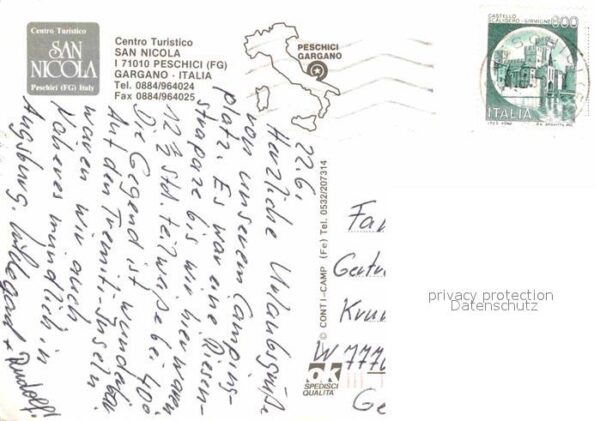 Centro Turistico
SAN
NICOLA
Peschici (FG) Italy
Centro Turistico
SAN NICOLA
I 71010 PESCHICI (FG)
GARGANO - ITALIA
Tel. 0884/964024
Fax 0884/964025
PESCHICI
GARGANO
CASTELLO
SCALIGERO - SIRMIONE
600
ITALIA
22.6.
Herzliche Urlaubsgrüße
von unserem Camping-
platz. Es war eine Riesen-
strapaze bis wir hier waren
12 ½ Std. teilweise bei 40°
Die Gegend ist wunderbar.
Auf den Tremiti-Inseln
waren wir auch.
Näheres mündlich in
Augsburg. Wildegard + Rudolf
© CONTI-CAMP (Fe) Tel. 0532/207314
ok
SPEDISCI
QUALITÀ
Fa
W 7770
Ge
privacy protection
Datenschutz